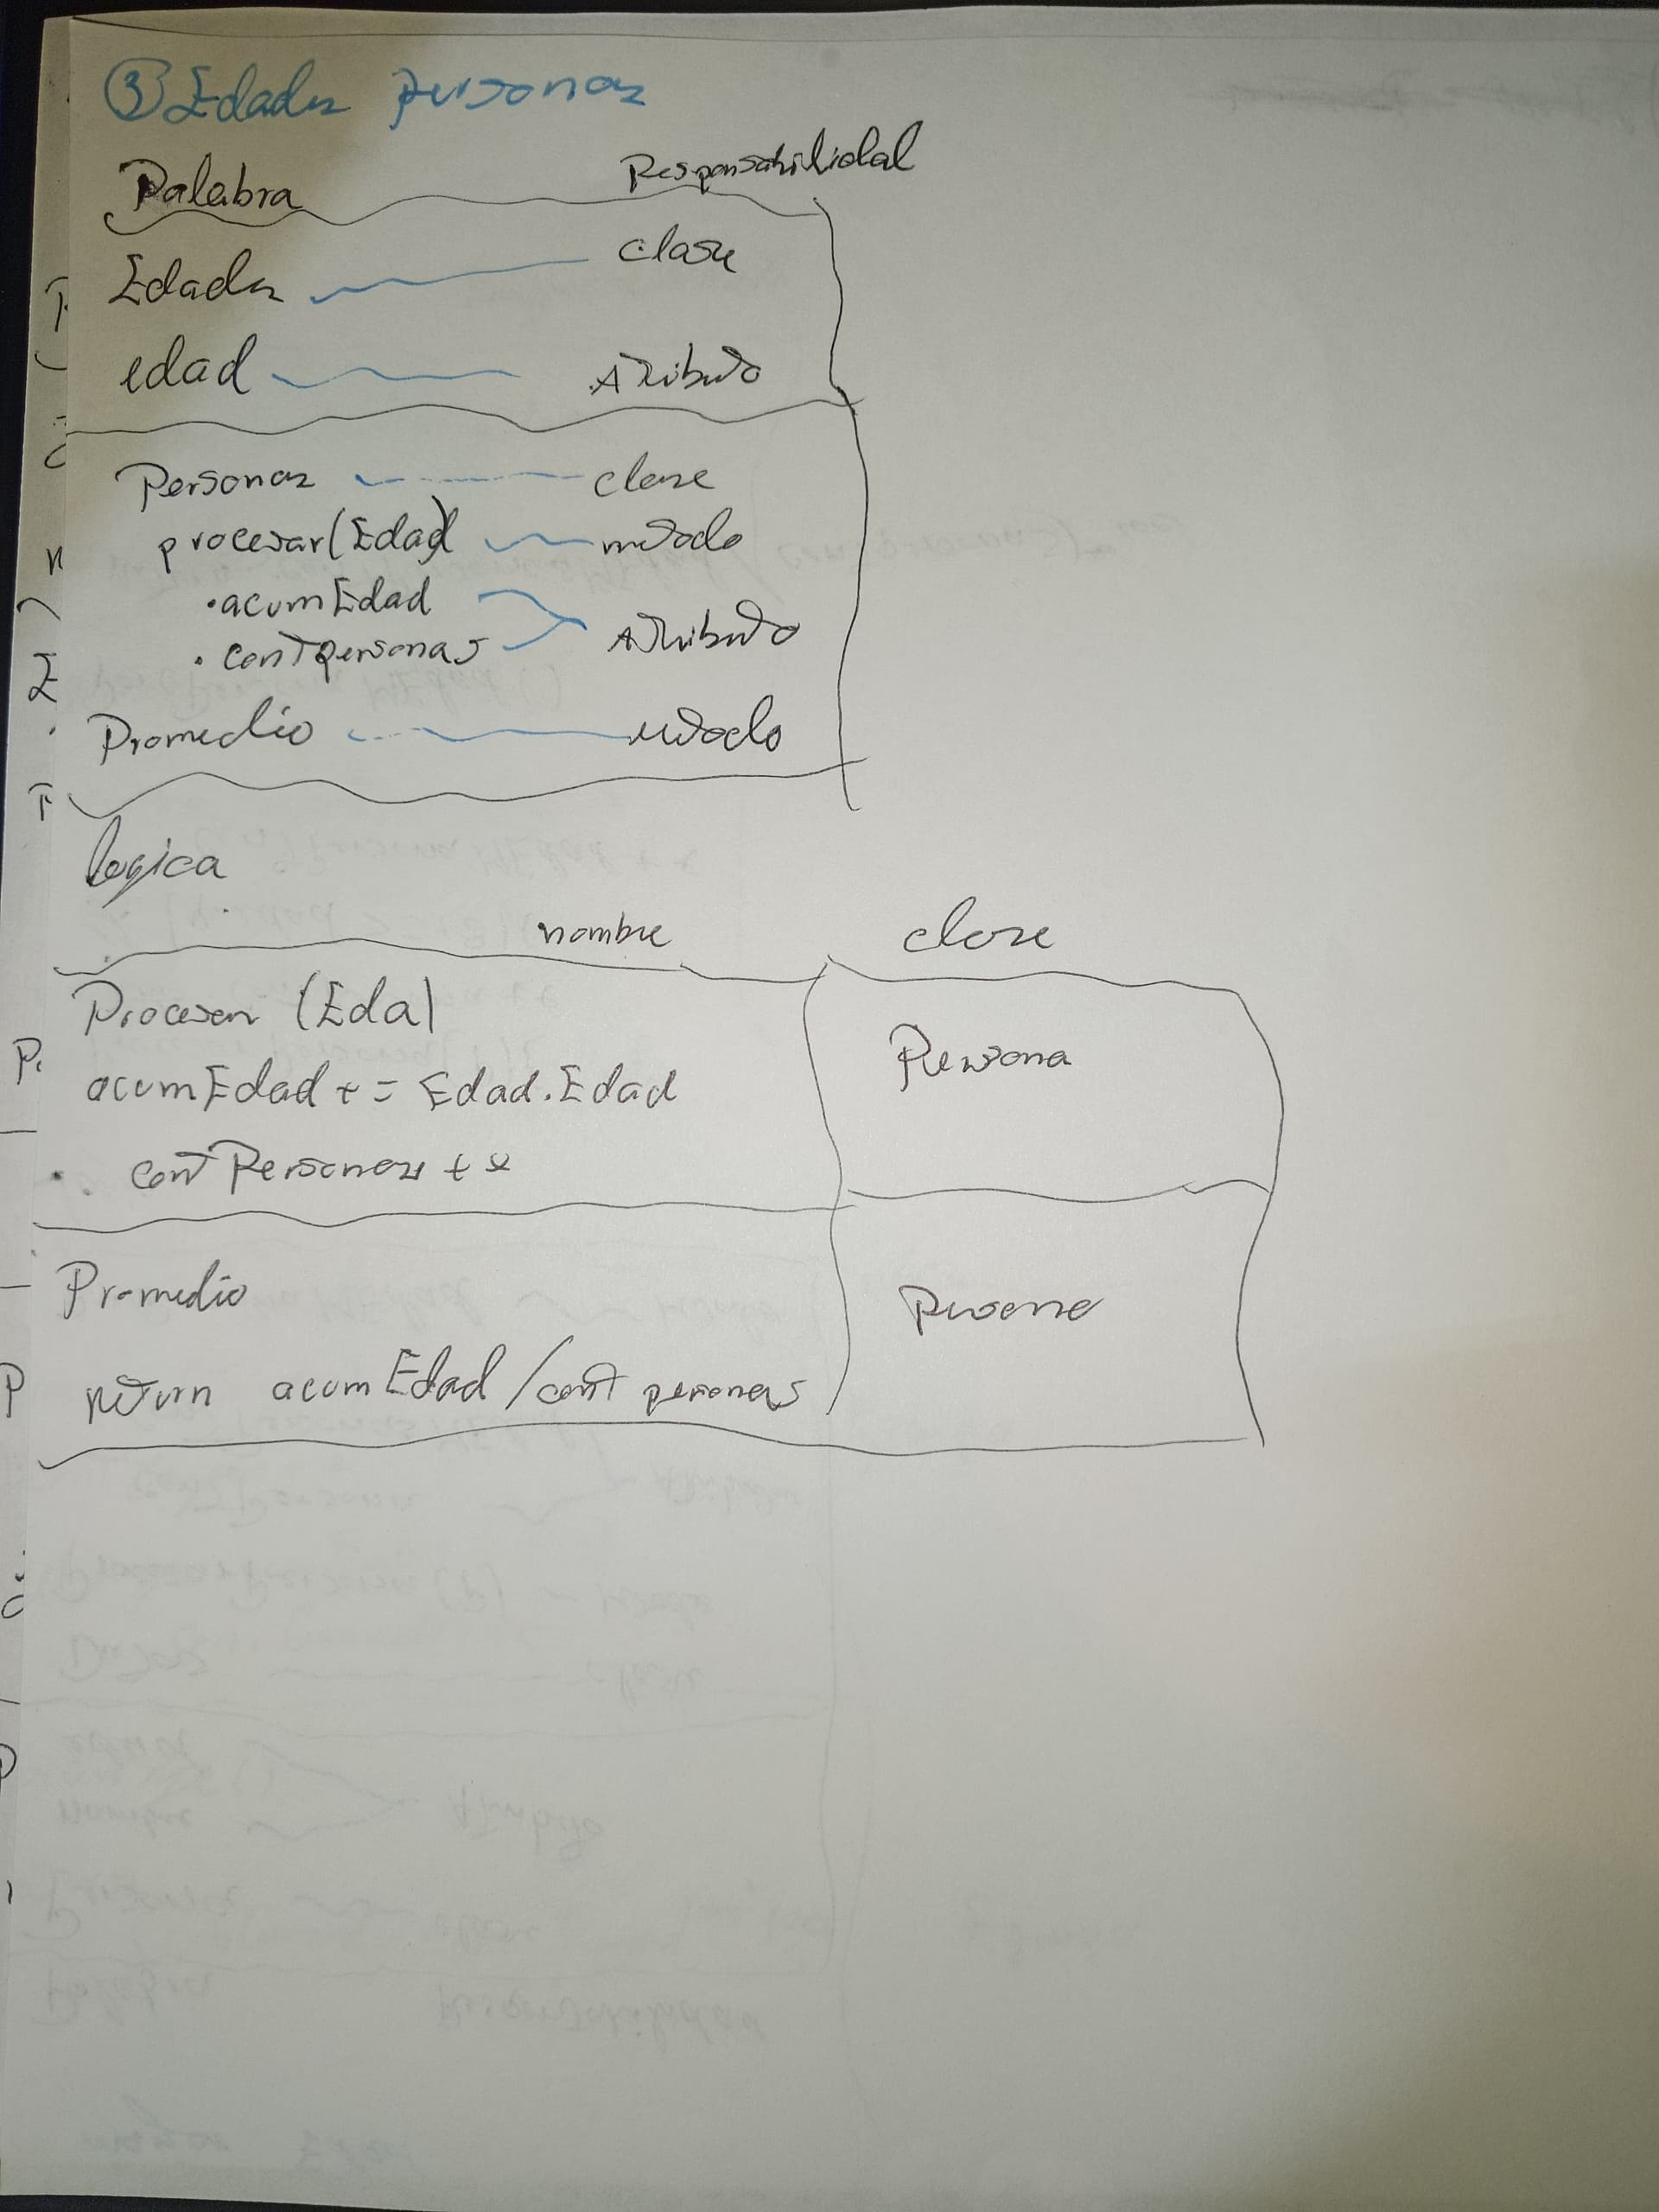 ③ Edades personas
Palabra Responsabilidad
Edades clase
edad Atributo
Personas clase
procesar(Edad) metodo
•acumEdad
•contpersonas Atributo
Promedio metodo
logica
nombre clase
Procesar (Eda)
acumEdad += Edad.Edad Persona
contPersonas ++
Promedio Persona
return acumEdad/cont personas